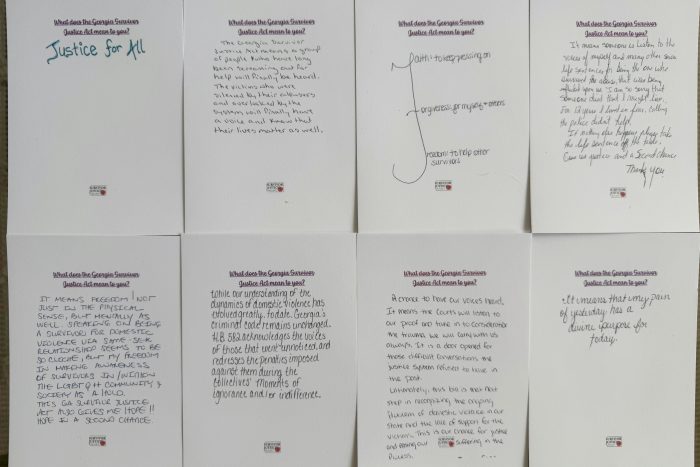 What does the Georgia Survivor
Justice Act mean to you?
Justice for All
What does the Georgia Survivor
Justice Act mean to you?
The Georgia Survivor
Justice Act means a group
of people who have long
been screaming out for
help will finally be heard.
The victims who were
silenced by their abusers
and overlooked by the
system will finally have
a voice and know that
their lives matter as well.
What does the Georgia Survivor
Justice Act mean to you?
Faith: to keep pressing on
Forgiveness: for myself + others
Freedom: to help other
survivors
What does the Georgia Survivor
Justice Act mean to you?
It means someone is listen to the
voices of myself and many other
life sentences for being the one who
survived the abuse, that was being
upon us. I am so sorry that
someone died that I
For years I lived in fear, calling
the police didn't help.
If nothing else happens please take
the life sentence off the table.
Give us justice and a Second chance
Thank You
What does the Georgia Survivor
Justice Act mean to you?
It means freedom! Not
just in the physical
sense, but mentally as
well. Speaking on being
a survivor for domestic
violence via same-sex
relationship seems to be
so cliche, but my freedom
in making awareness
of survivors in/within
the LGBTQ++ community &
society as a hold.
This GA Survivor Justice
Act also gives me hope!!
Hope in a second chance.
What does the Georgia Survivor
Justice Act mean to you?
While our understanding of the
dynamics of domestic violence has
evolved greatly, to date, Georgia's
criminal code remains unchanged.
H.B. 582 acknowledges the voices
of those that went unnoticed, and
redresses the penalties imposed
against them during the
collectives' moments of
ignorance and/or indifference.
What does the Georgia Survivor
Justice Act mean to you?
A chance to have our voices heard.
It means the courts will listen to
our proof and take in to consideration
the trauma we will carry with us
always. It is a door opened for
those difficult conversations the
justice system refused to have in
the past.
Ultimately, this bill is the first
step in recognizing the ongoing
problem of domestic violence in our
state and the lack of support for the
victims. This is our chance for justice
and our suffering in the
process.
What does the Georgia Survivor
Justice Act mean to you?
It means that my pain
of yesterday has a
divine purpose for
today.